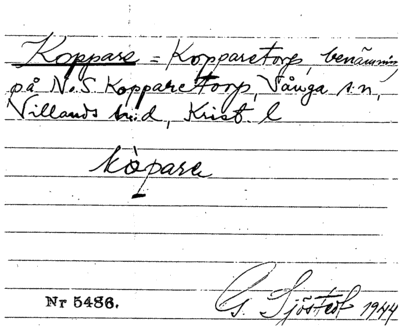 Koppare = Kopparetorp, benämning
på N.S. Kopparetorp, Vånga s:n,
Villands h:d, Krist. l
kòpara
Nr 5486.
G. Sjöstedt 1944